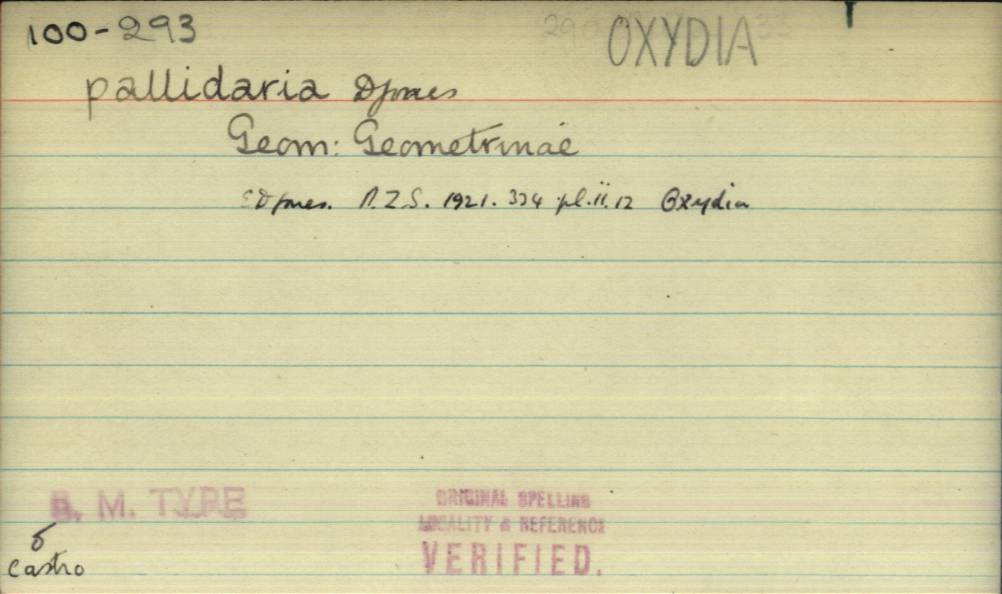 100-293 OXYDIA
pallidaria D Jones
Geom: Geometrinae
E D Jones. P.Z.S. 1921. 334 pl.ii.12 Oxydia
B. M. TYPE
ORIGINAL SPELLING
LOCALITY & REFERENCE
VERIFIED.
Castro